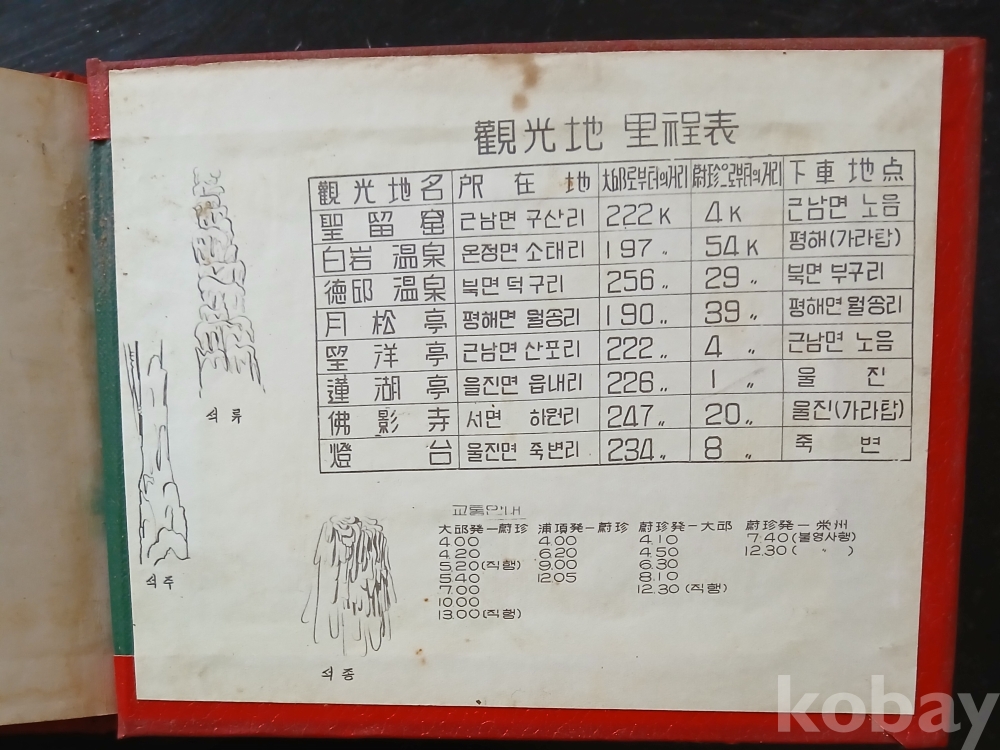 觀光地 里程表
觀光地名 所在地 大邱로부터의거리 蔚珍으로부터의거리 下車地点
聖留窟 근남면 구산리 222K 4K 근남면 노음
白岩温泉 온정면 소태리 197〃 54K 평해(가라탑)
德邱温泉 북면 덕구리 256〃 29〃 북면 부구리
月松亭 평해면 월송리 190〃 39〃 평해면 월송리
望洋亭 근남면 산포리 222〃 4〃 근남면 노음
蓮湖亭 울진면 읍내리 226〃 1〃 울진
佛影寺 서면 하원리 247〃 20〃 울진(가라탑)
燈台 울진면 죽변리 234〃 8〃 죽변
석류
석주
석종
교통안내
大邱発—蔚珍 浦項発—蔚珍 蔚珍発—大邱 蔚珍発—栄州
4.00 4.00 4.10 7.40(불영사행)
4.20 6.20 4.50 12.30(〃)
5.20(직행) 9.00 6.30
5.40 12.05 8.10
7.00 12.30(직행)
10.00
13.00(직행)
kobay